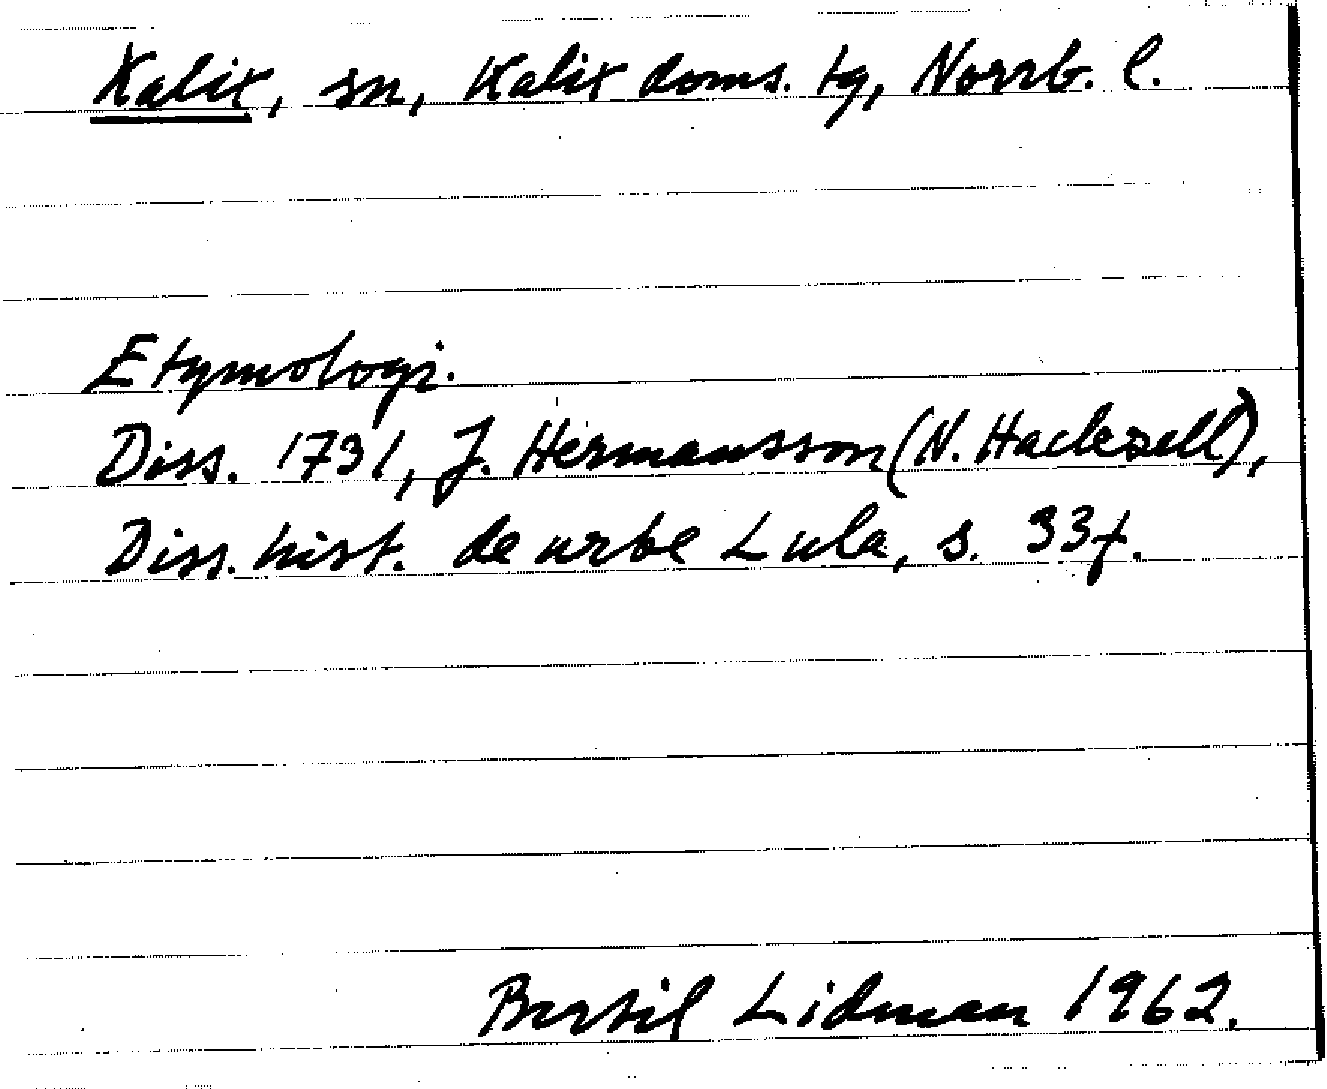 Kalix, sn, Kalix doms. tg, Norrb. l.
Etymologi.
Diss. 1731, J. Hermansson (N. Hackzell),
Diss. hist. de urbe Lula, s. 33f.
Bertil Lidman 1962.